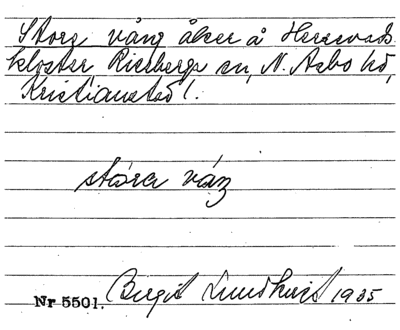 Stora vång åker å Herrevads
kloster Riseberga sn, N. Åsbo hd,
Kristianstad l.
stóra váŋ
Nr 5501. Birgit Lundkvist 1935